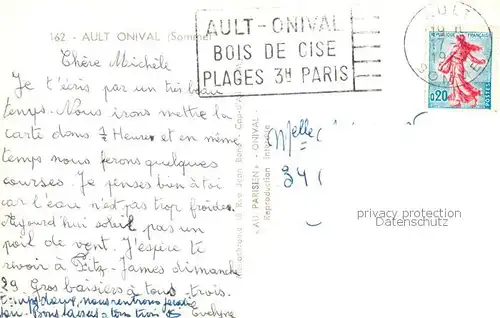 162 - AULT ONIVAL (Somme)
AULT-ONIVAL
BOIS DE CISE
PLAGES 3H PARIS
AULT
SOMME
REPUBLIQUE FRANÇAISE
0,20
POSTES
Chère Michèle
Je t'écris par un très beau
temps. Nous irons mettre la
carte dans ½ Heure et en même
temps nous ferons quelques
courses. Je penses bien à toi
car l'eau n'est pas trop froides.
Aujourd'hui soleil pas un
poil de vent. J'espère te
revoir à Fitz-James dimanche
29 Gros baisers à tous trois.
temps doux, nous rentrons
Bons baisers à tous trois Evelyne
"AU PARISIEN" - ONIVAL
Reproduction Interdite
Rue Jean Bony
Melle
34
privacy protection
Datenschutz